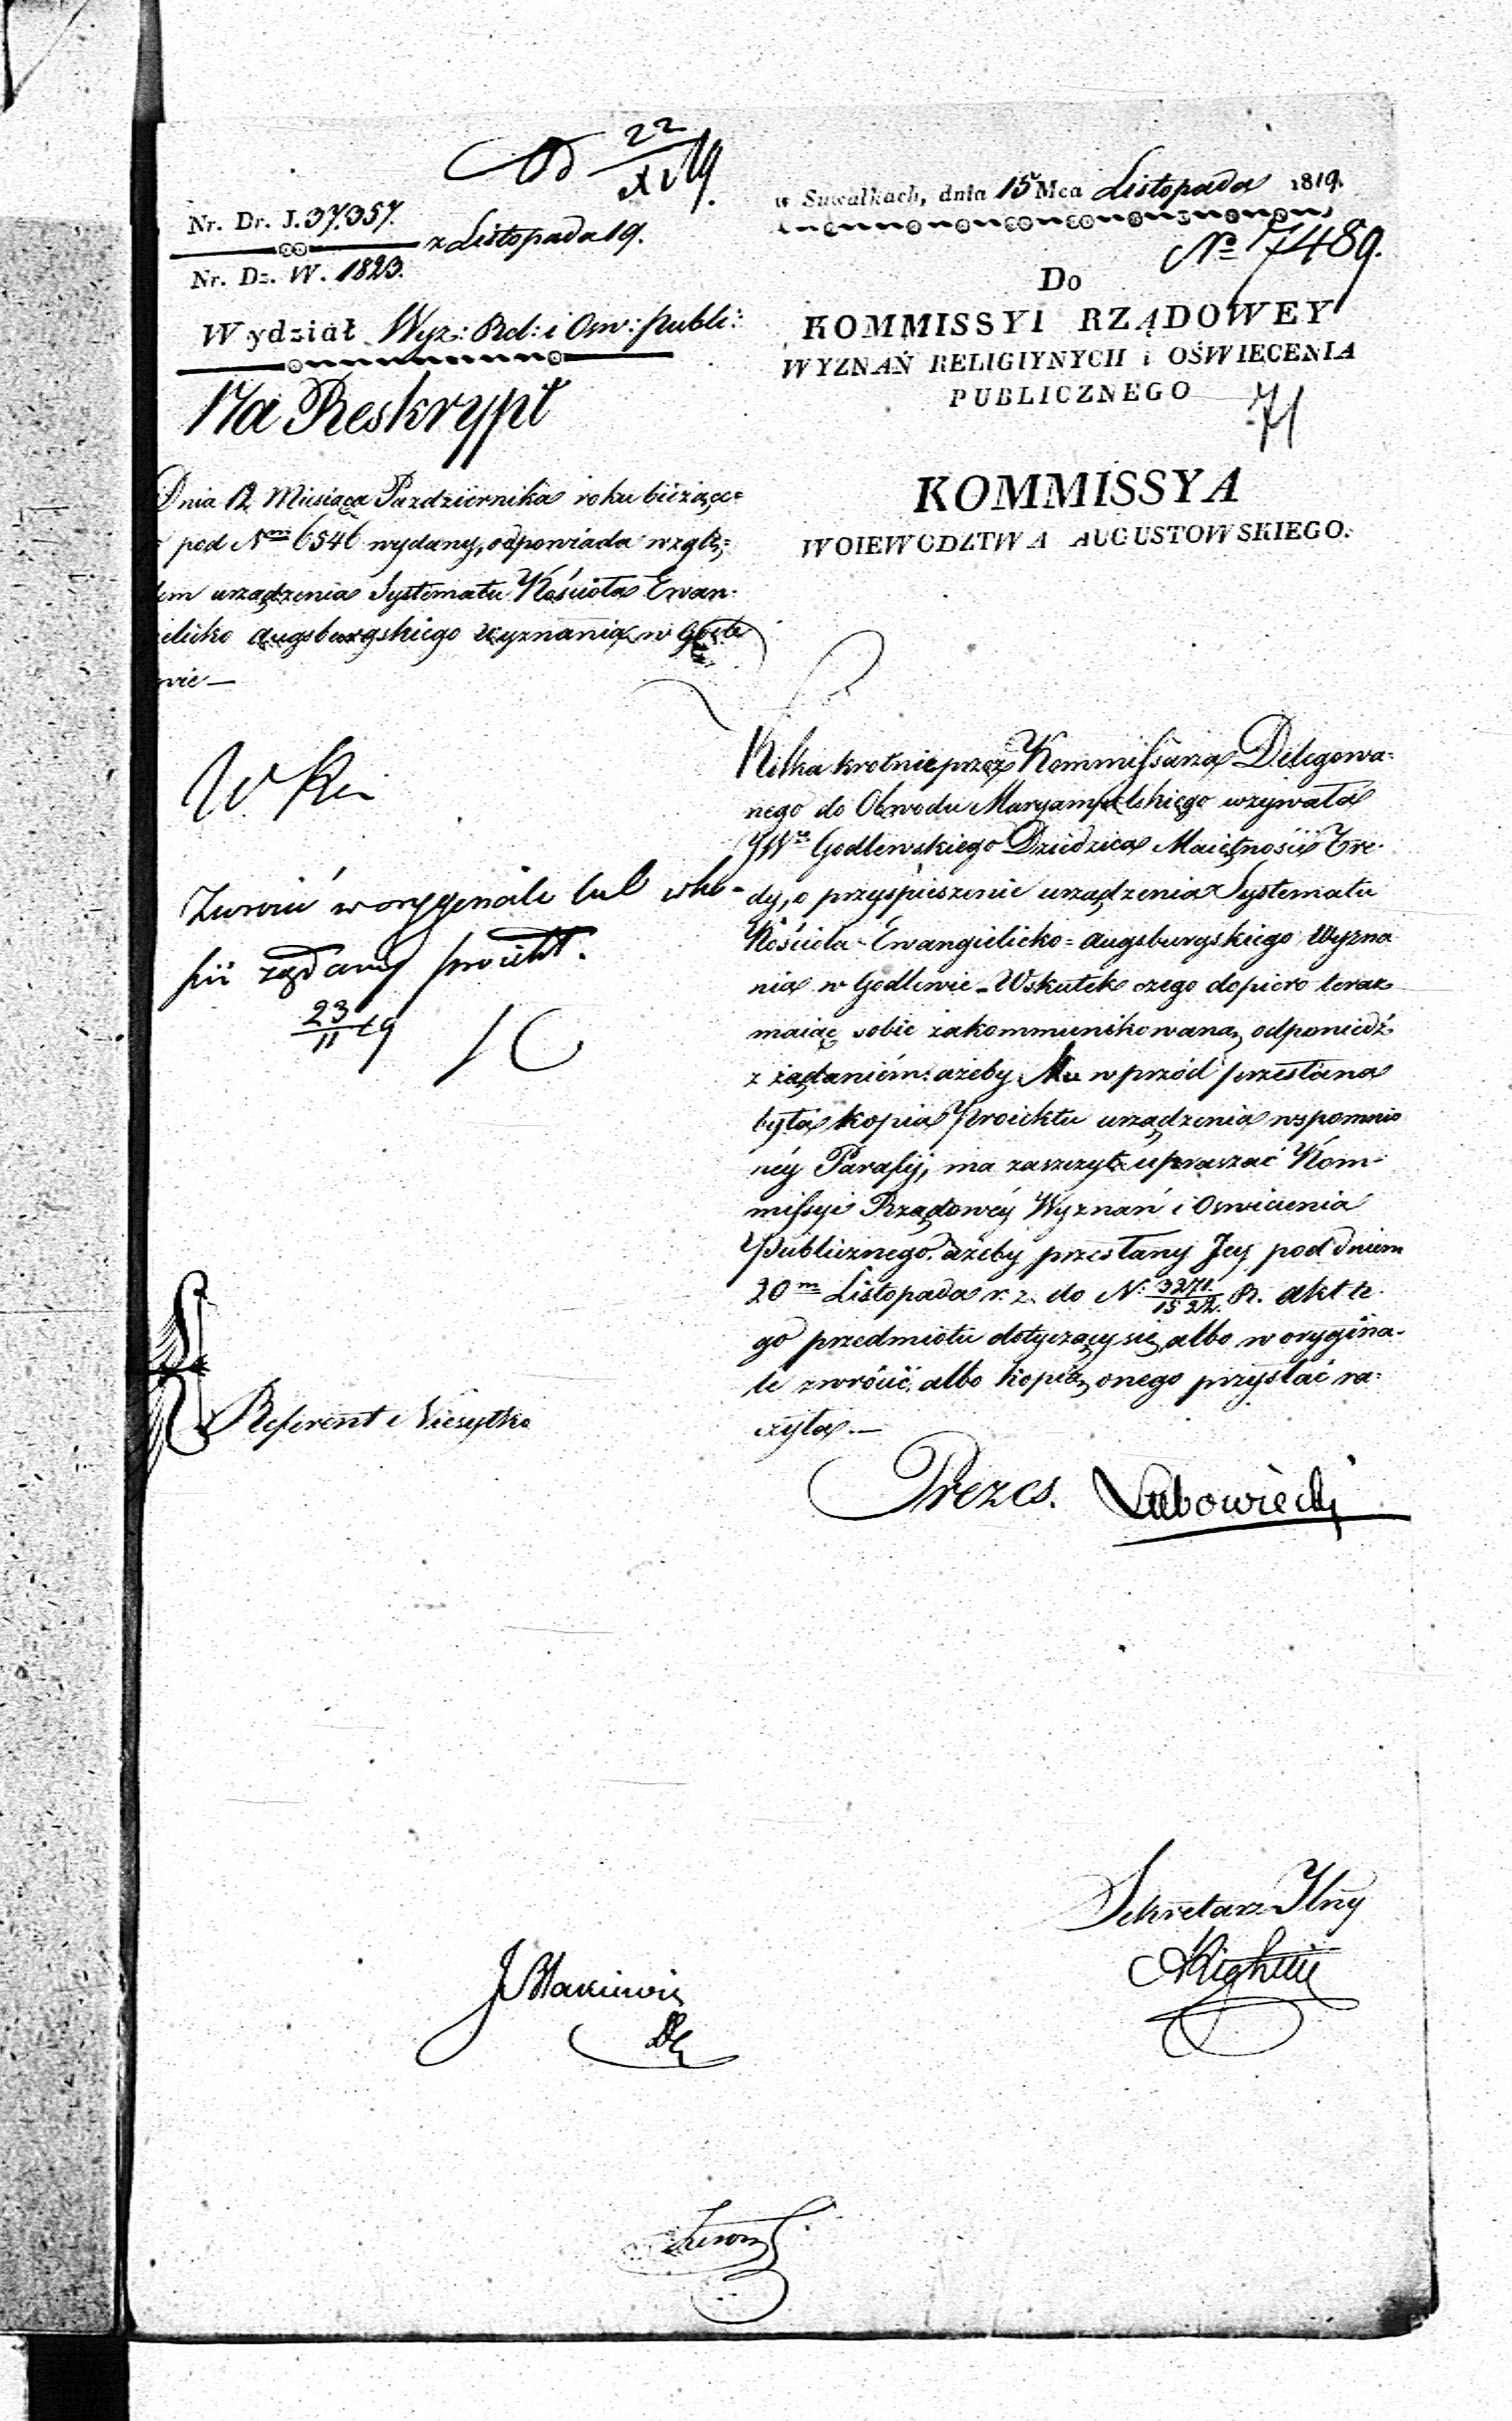 Od 22/XI 19.
Nr. Dr. J. 37,357.
z Listopada 19.
Nr. Dz. W. 1823.
Wydział Wyz: Rel: i Osw: publi:
Na Reskrypt
Dnia 12 Miesiąca Pazdziernika roku bieżące=
pod Nrem 6546 wydany, odpowiada wzglę=
dem urządzenia Systematu Kościoła Ewan=
ielicko augsburgskiego wyznania w Godle
wie —
Zwrocić w oryginale lub w ko=
pii żądany proiekt.
23/11 19
Referent Nieszytka
w Suwałkach, dnia 15 Mca Listopada 1819.
No 7489.
Do
KOMMISSYI RZĄDOWEY
WYZNAŃ RELIGIYNYCH i OŚWIECENIA
PUBLICZNEGO
71
KOMMISSYA
WOIEWODZTWA AUGUSTOWSKIEGO.
Kilka krotnie przez Kommissarza Delegowa=
nego do Obwodu Maryampolskiego wzywała
JWo Godlewskiego Dziedzica Maiętności Fre=
dy, o przyspieszenie urządzenia Systematu
Kościoła Ewangielicko=augsburgskiego Wyzna
nia w Godlewie — Wskutek czego dopiero teraz
maiąc sobie zakommunikowaną odpowiedź
z żądaniem: ażeby Mu wprzód przesłana
była kopia Proiektu urządzenia wspomnio
néy Parafij, ma zaszczyt upraszać Kom=
missyi Rządowéy Wyznań i Oswiecenia
Publicznego: ażeby przesłany Jey pod dniem
20m Listopada r. z. do N: 3271/1522. R. akt te=
go przedmiotu dotyczący się, albo w orygina=
le zwrócić, albo kopią onego przysłać ra=
czyła. —
Prezes. Lubowiecki
Sekretarz Jlny